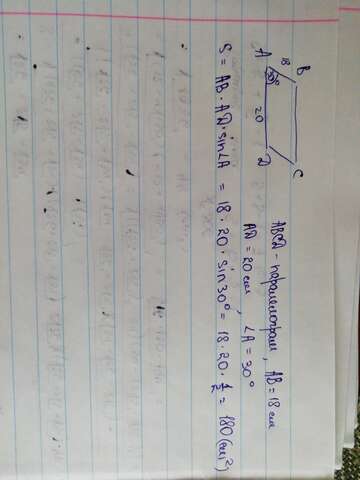 B
C
18
A
30°
20
D
ABCD - паралелограм, AB = 18 см
AD = 20 см, ∠A = 30°
S = AB · AD · sin∠A = 18 · 20 · sin 30° = 18 · 20 · 1/2 = 180 (см²)